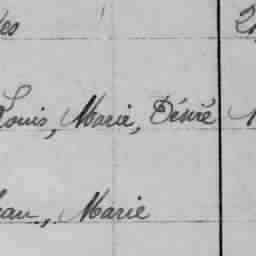 Louis, Marie, Désiré
Marie